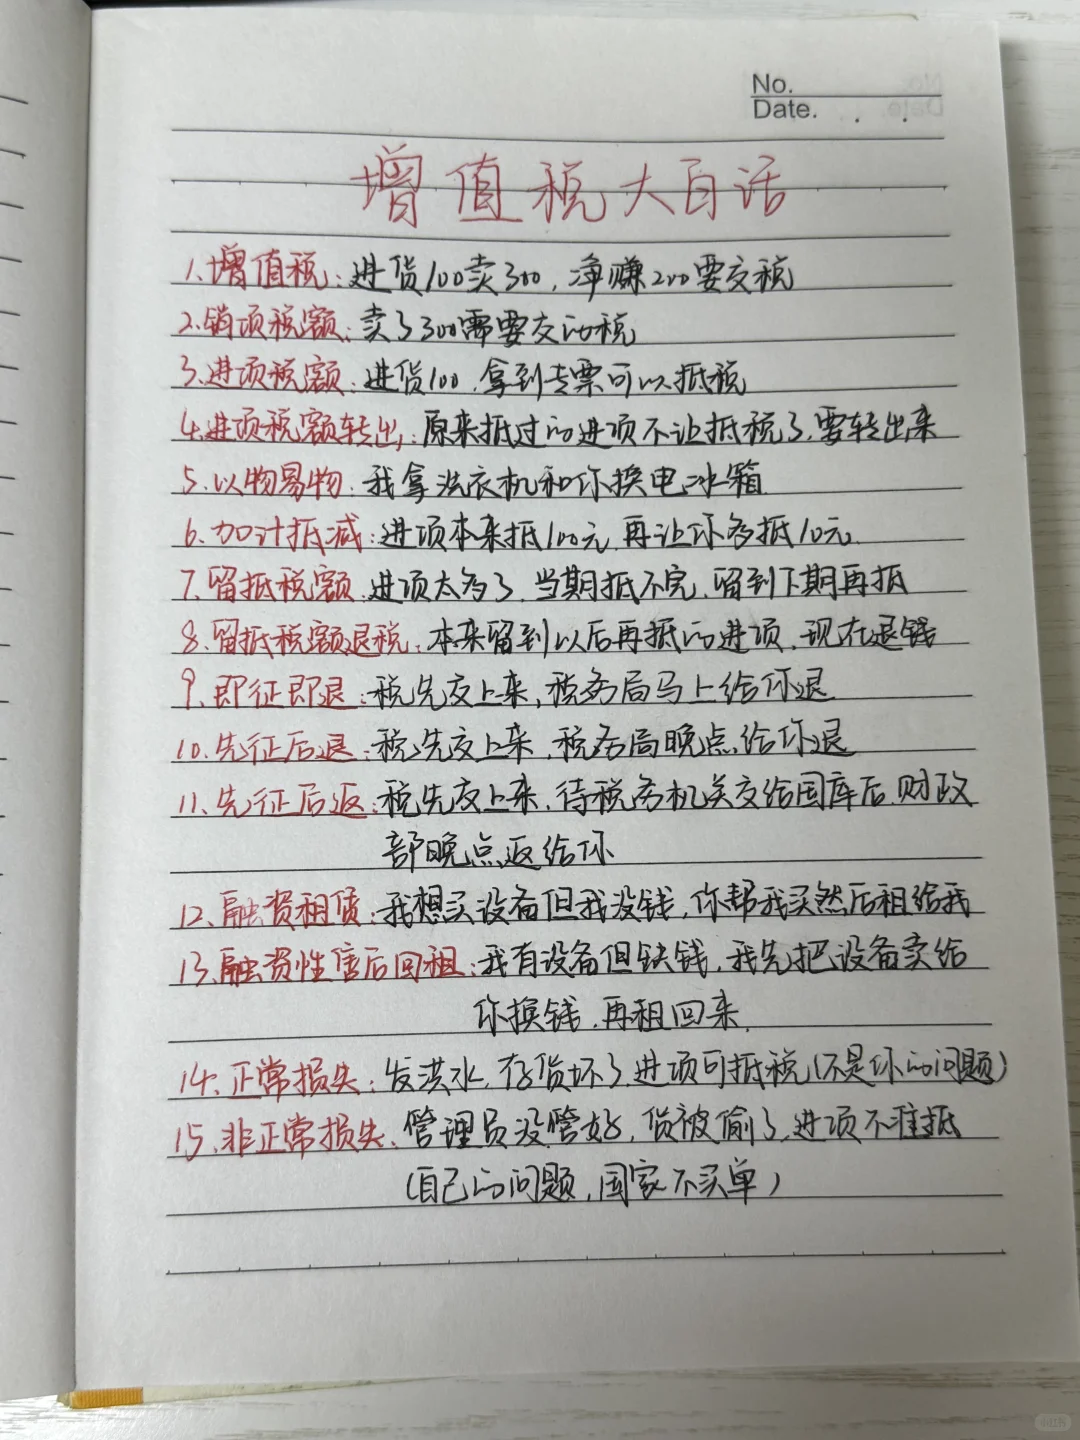 No.
Date.
增值税大白话
1.增值税:进货100卖300,净赚200要交税
2.销项税额:卖了300需要交的税
3.进项税额:进货100,拿到专票可以抵税
4.进项税额转出:原来抵过的进项不让抵税了,要转出来
5.以物易物:我拿洗衣机和你换电冰箱
6.加计抵减:进项本来抵100元,再让你多抵10元
7.留抵税额:进项太多了,当期抵不完,留到下期再抵
8.留抵税额退税:本来留到以后再抵的进项,现在退钱
9.即征即退:税先交上来,税务局马上给你退
10.先征后退:税先交上来,税务局晚点给你退
11.先征后返:税先交上来,待税务机关交给国库后,财政
部晚点返给你
12.融资租赁:我想买设备但我没钱,你帮我买然后租给我
13.融资性售后回租:我有设备但缺钱,我先把设备卖给
你换钱,再租回来
14.正常损失:发洪水,存货坏了,进项可抵税(不是你的问题)
15.非正常损失:管理员没管好,货被偷了,进项不准抵
(自己的问题,国家不买单)